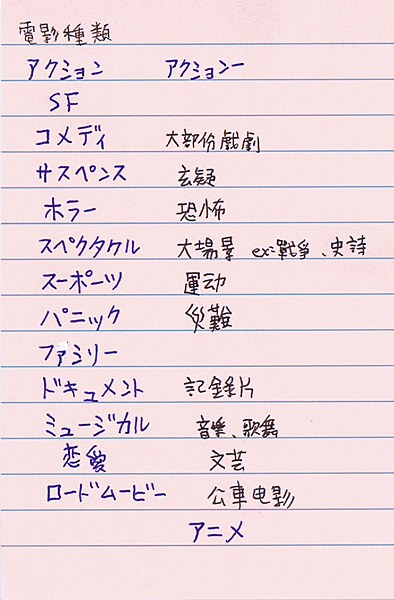 電影種類
アクション アクションー
SF
コメディ 大部份戲劇
サスペンス 玄疑
ホラー 恐怖
スペクタクル 大場景 ex:戰爭、史詩
スーポーツ 運动
パニック 災難
ファミリー
ドキュメント 記錄片
ミュージカル 音樂、歌舞
恋愛 文芸
ロードムービー 公車电影
アニメ